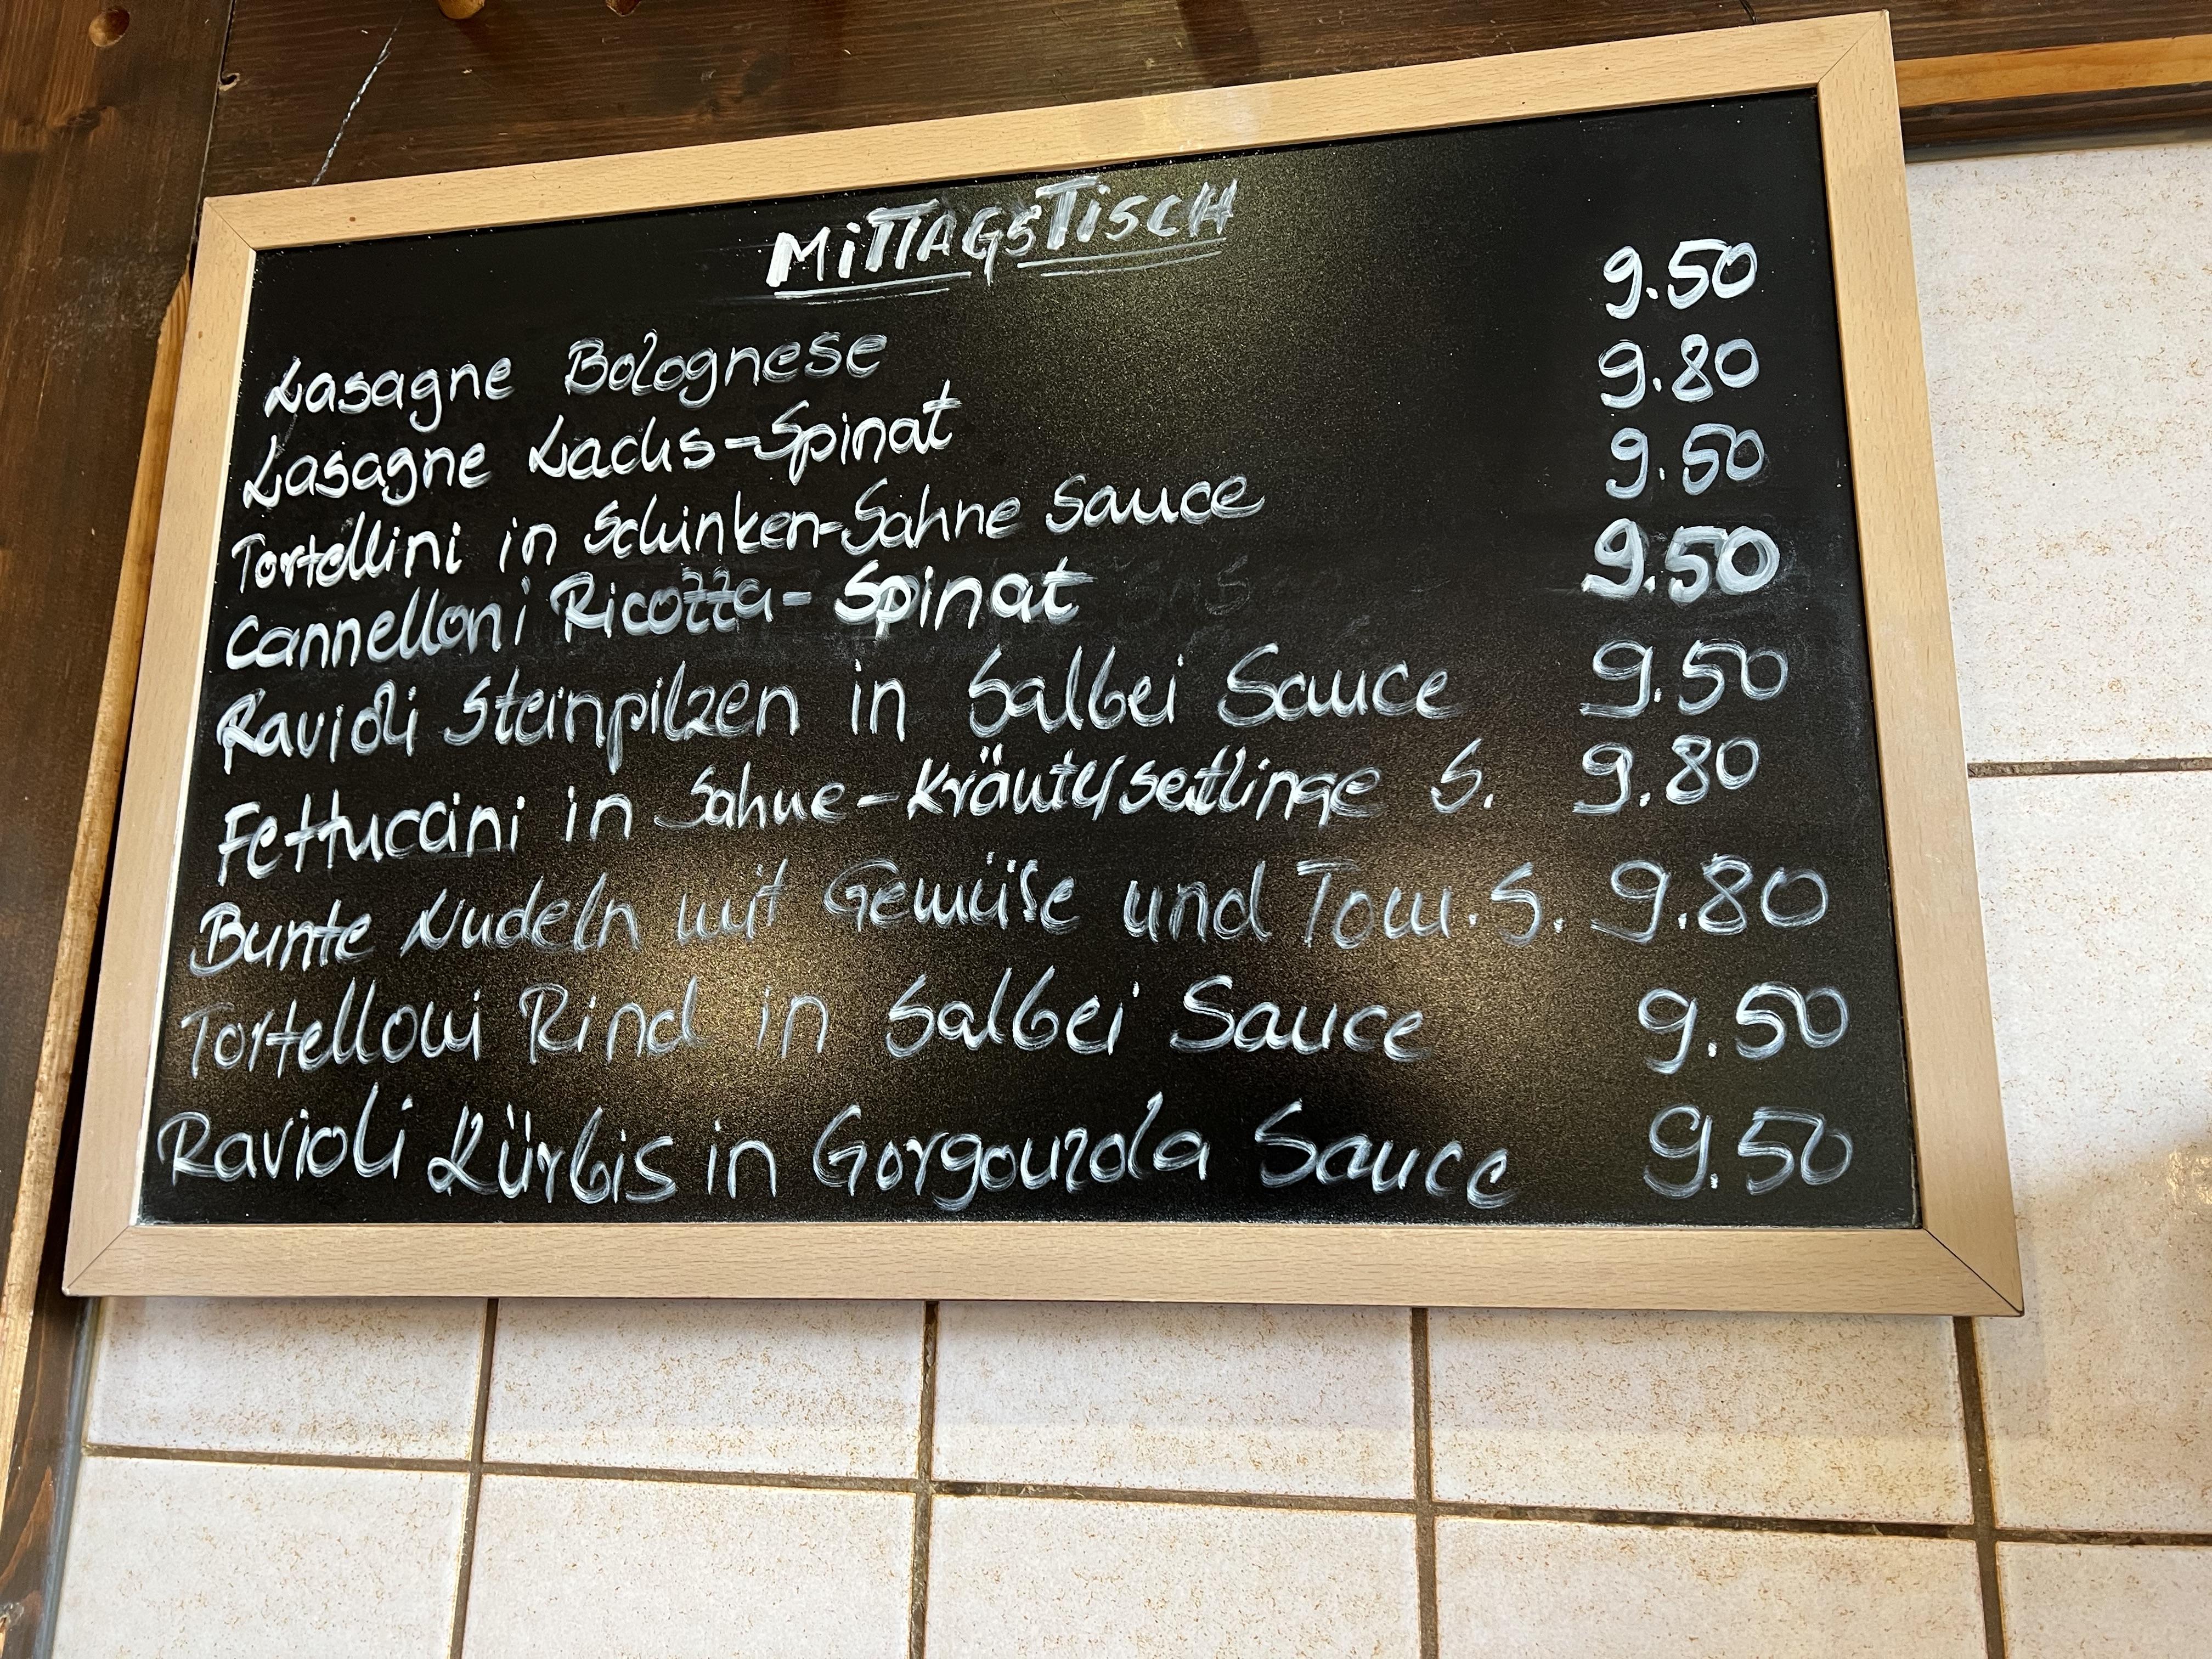 MiTTAGSTiSCH
Lasagne Bolognese 9.50
Lasagne Lachs-Spinat 9.80
Tortellini in Schinken-Sahne Sauce 9.50
Cannelloni Ricotta-Spinat 9.50
Ravioli Steinpilzen in Salbei Sauce 9.50
Fettuccini in Sahne-Kräuterseitlinge S. 9.80
Bunte Nudeln mit Gemüse und Tom.S. 9.80
Tortelloni Rind in Salbei Sauce 9.50
Ravioli Kürbis in Gorgonzola Sauce 9.50